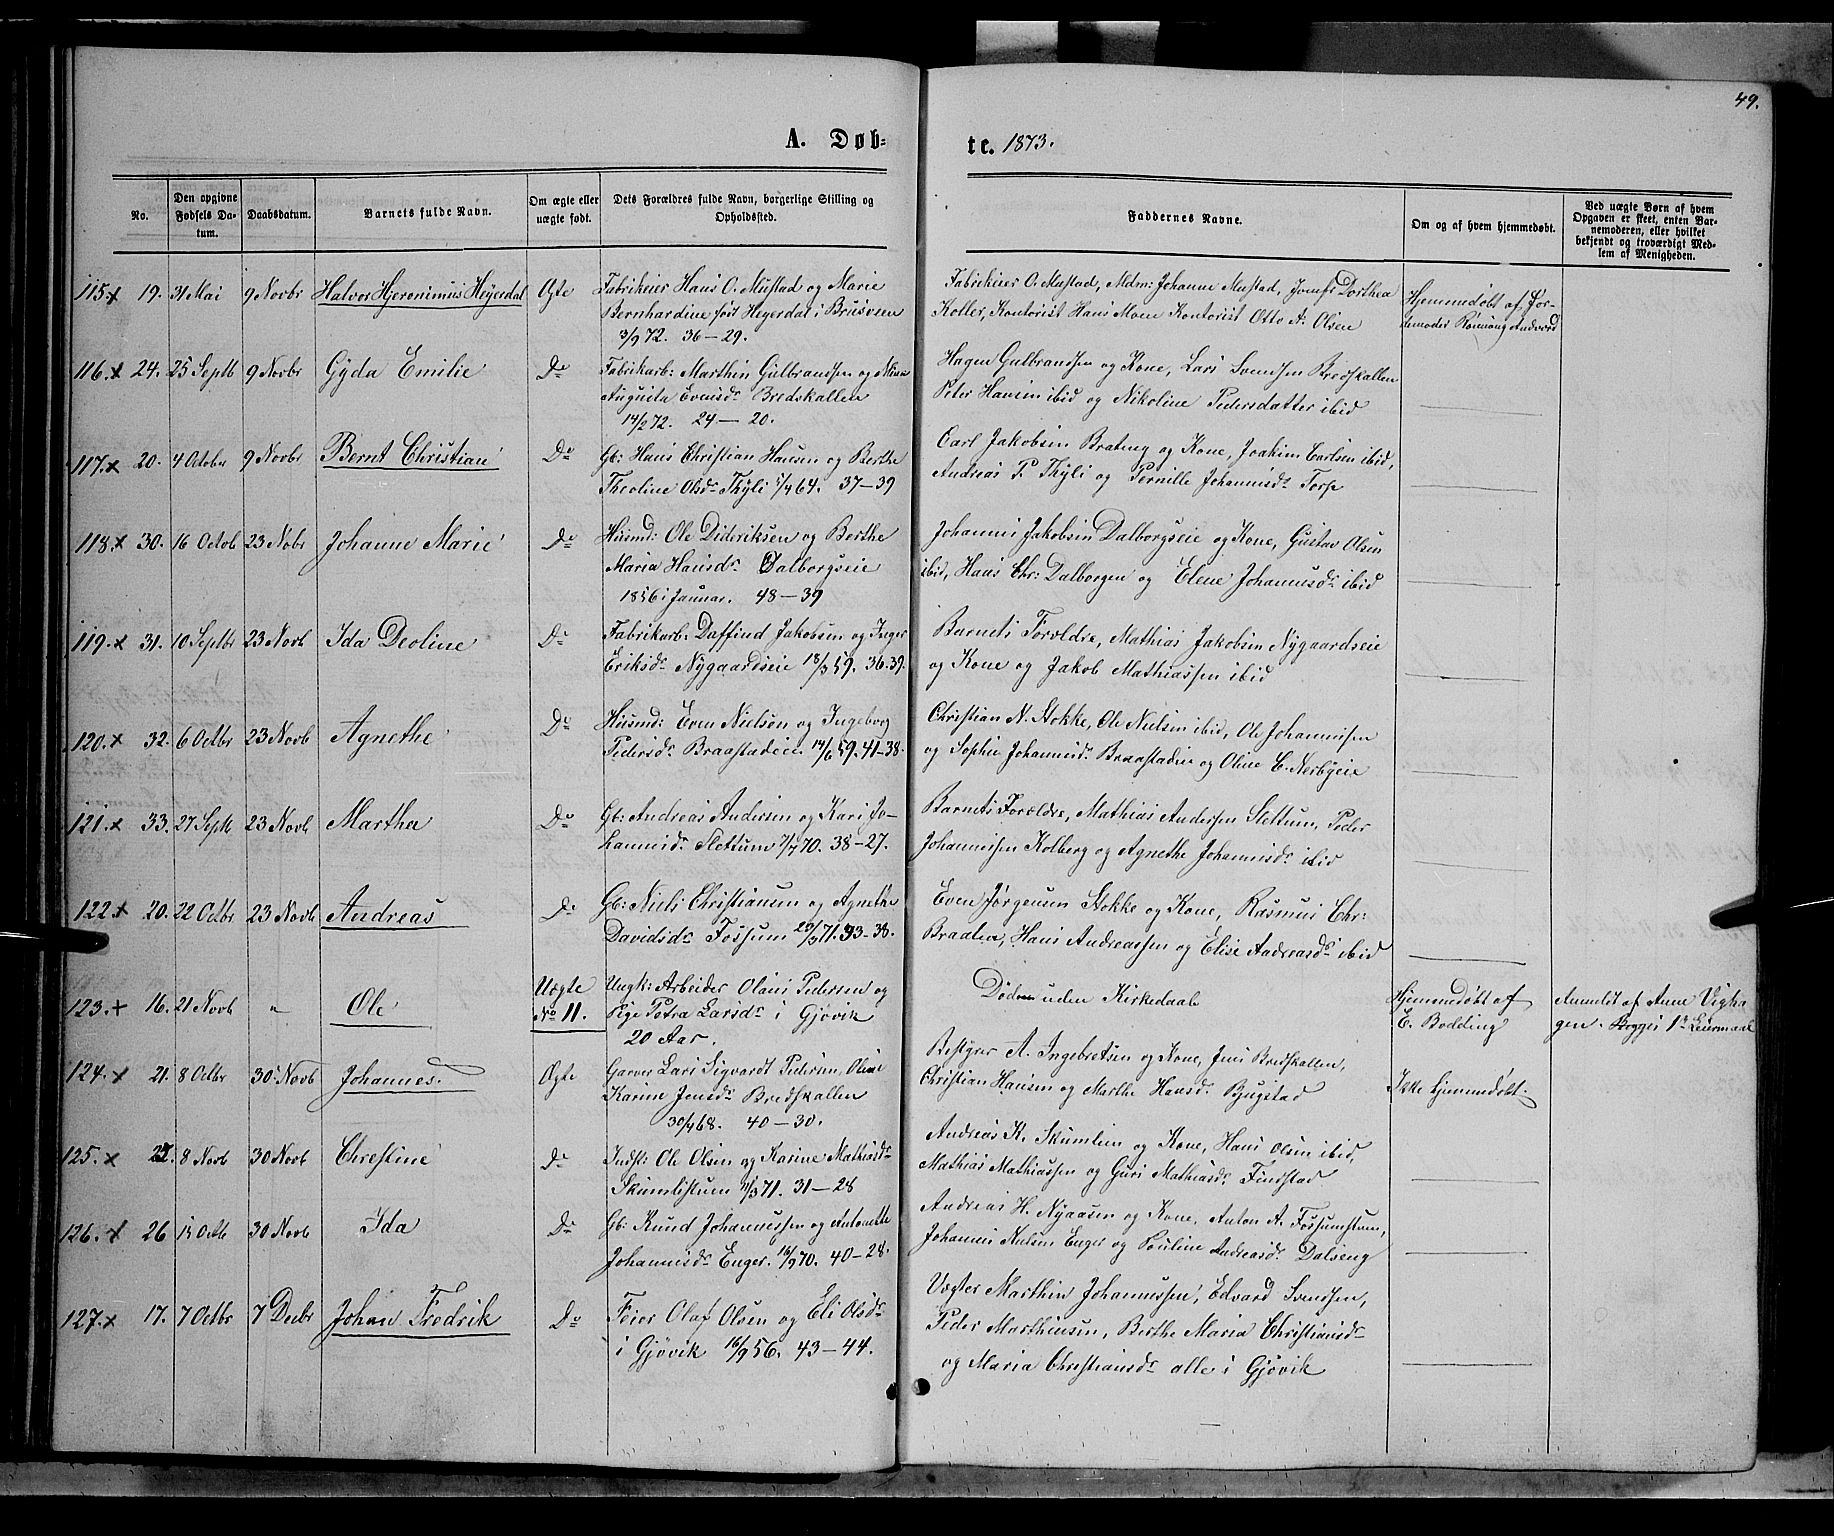 49.
A. Døb-
te. 1873.
No.
Den opgivne Fødsels Da-
tum.
Daabsdatum.
Barnets fulde Navn.
Om ægte eller
uægte født.
Dets Forældres fulde Navn, borgerlige Stilling og
Opholdsted.
Faddernes Navne.
Om og af hvem hjemmedøbt.
Ved uægte Børn af hvem
Opgaven er skeet, enten Bar-
nemoderen, eller hvilket
bekjendt og troværdigt Med-
lem af Menigheden.
115.x 19. 31 Mai 9 Novbr Halvor Hjeronimus Heyerdal Ægte Fabrikeier Hans O. Mustad og Marie
Bernhardine født Heyerdal i Brusveen
3/9 72. 36-29.
Fabrikeier O. Mustad, Mdm: Johanne Mustad, Jomfr Dorthea
Koller, Kontorist Hans Moen Kontorist Otto A. Olsen
Hjemmedøbt af Jor-
demoder Andvord
116.x 24. 25 Septb 9 Novbr Gyda Emilie Do Fabrikarb: Marthin Gulbrandsen og
Augusta Evensdr Bredskallen
14/2 72. 24-20.
Hagen Gulbrandsen og Kone, Lars Svendsen Bredskallen
Peter Hansen ibid og Nikoline Pedersdatter ibid
117.x 20. 4 October 9 Novbr Bernt Christian Do Gb: Hans Christian Hansen og Berthe
Theoline Olsdr Thyli 1/4 64. 37-39
Carl Jakobsen Brateng og Kone, Joakim Carlsen ibid,
Andreas P. Thyli og Pernille Johannesdr Torp
118.x 30. 16 Octob 23 Nobr Johanne Marie Do Husmd: Ole Dideriksen og Berthe
Maria Hansdr Dalborgseie
1856 i Januar. 48-39
Johannes Jakobsen Dalborgseie og Kone, Gustav Olsen
ibid, Hans Chr: Dalborgen og Elene Johannesdr ibid
119.x 31. 10 Septbr 23 Novb Ida Deoline Do Fabrikarb: Daffind Jakobsen og Inger
Eriksdr Nygaardseie 18/3 59. 36.39.
Barnets Forældre, Mathias Jakobsen Nygaardseie
og Kone og Jakob Mathiassen ibid
120.x 32. 6 Octbr 23 Novb Agnethe Do Husmd: Even Nielsen og Ingeborg
Pedersdr Braastadeie 14/6 59. 41-38.
Christian N. Stokke, Ole Nielsen ibid, Ole Johannessen
og Sophie Johannesdr Braastadeie og Oline C. Nerbyeie
121.x 33. 27 Septb 23 Novb Marthea Do Gb: Andreas Andersen og Kari Jo-
hannesdr Slettum 7/7 70. 38-27.
Barnets Forældre, Mathias Andersen Slettum, Peder
Johannessen Kolberg og Agnethe Johannesdr ibid
122.x 20. 22 Octbr 23 Novb Andreas Do Gb: Niels Christiansen og Agnethe
Davidsdr Fossum 29/3 71. 33-38.
Even Jørgensen Stokke og Kone, Rasmus Chr:
Braalien, Hans Andreassen og Elise Andreasdr ibid
123.+ 16. 21 Novb " Ole Uægte
No 11.
Ungk: Arbeider Olaus Pedersen og
Pige Petra Larsdr i Gjövik
20 Aar.
Død uden Kirkedaab
Hjemmedøbt af
E. Bodding
Anmeldt af Anne Vigha-
gen.
124.x 21. 8 Octbr 30 Novb Johannes. Ægte Garver Lars Sigvardt Pedersen, Oline
Karine Jensdr Bredskallen
30/4 68. 40-30.
Bestyrer A. Ingebretsen og Kone, Jens Bredskallen,
Christian Hansen og Marthe Hansdr Bjugstad
Ikke hjemmedøbt.
125.x 22. 8 Novb 30 Novb Chrestine Do Indst: Ole Olsen og Karine Mathiasdr
Skumlistuen 11/3 71. 31-28
Andreas K. Skumlien og Kone, Hans Olsen ibid,
Mathias Mathiassen og Guri Mathiasdr Findstad
126.x 26 15 Octb 30 Novb Ida Do Gb: Knud Johannessen og Antonette
Johannesdr Enger. 16/9 70. 40-28.
Andreas H. Nyaasen og Kone, Anton A. Fossumstuen,
Johannes Nielsen Enger og Pouline Andreasdr Dalseng
127.x 17. 7 Octbr 7 Decbr Johan Fredrik Do Feier Olaf Olsen og Eli Olsdr
i Gjövik 16/9 56. 43-44.
Vægter Marthin Johannessen, Edvard Svendsen,
Peder Marthinsen, Berthe Maria Christiansdr
og Maria Christiansdr alle i Gjövik